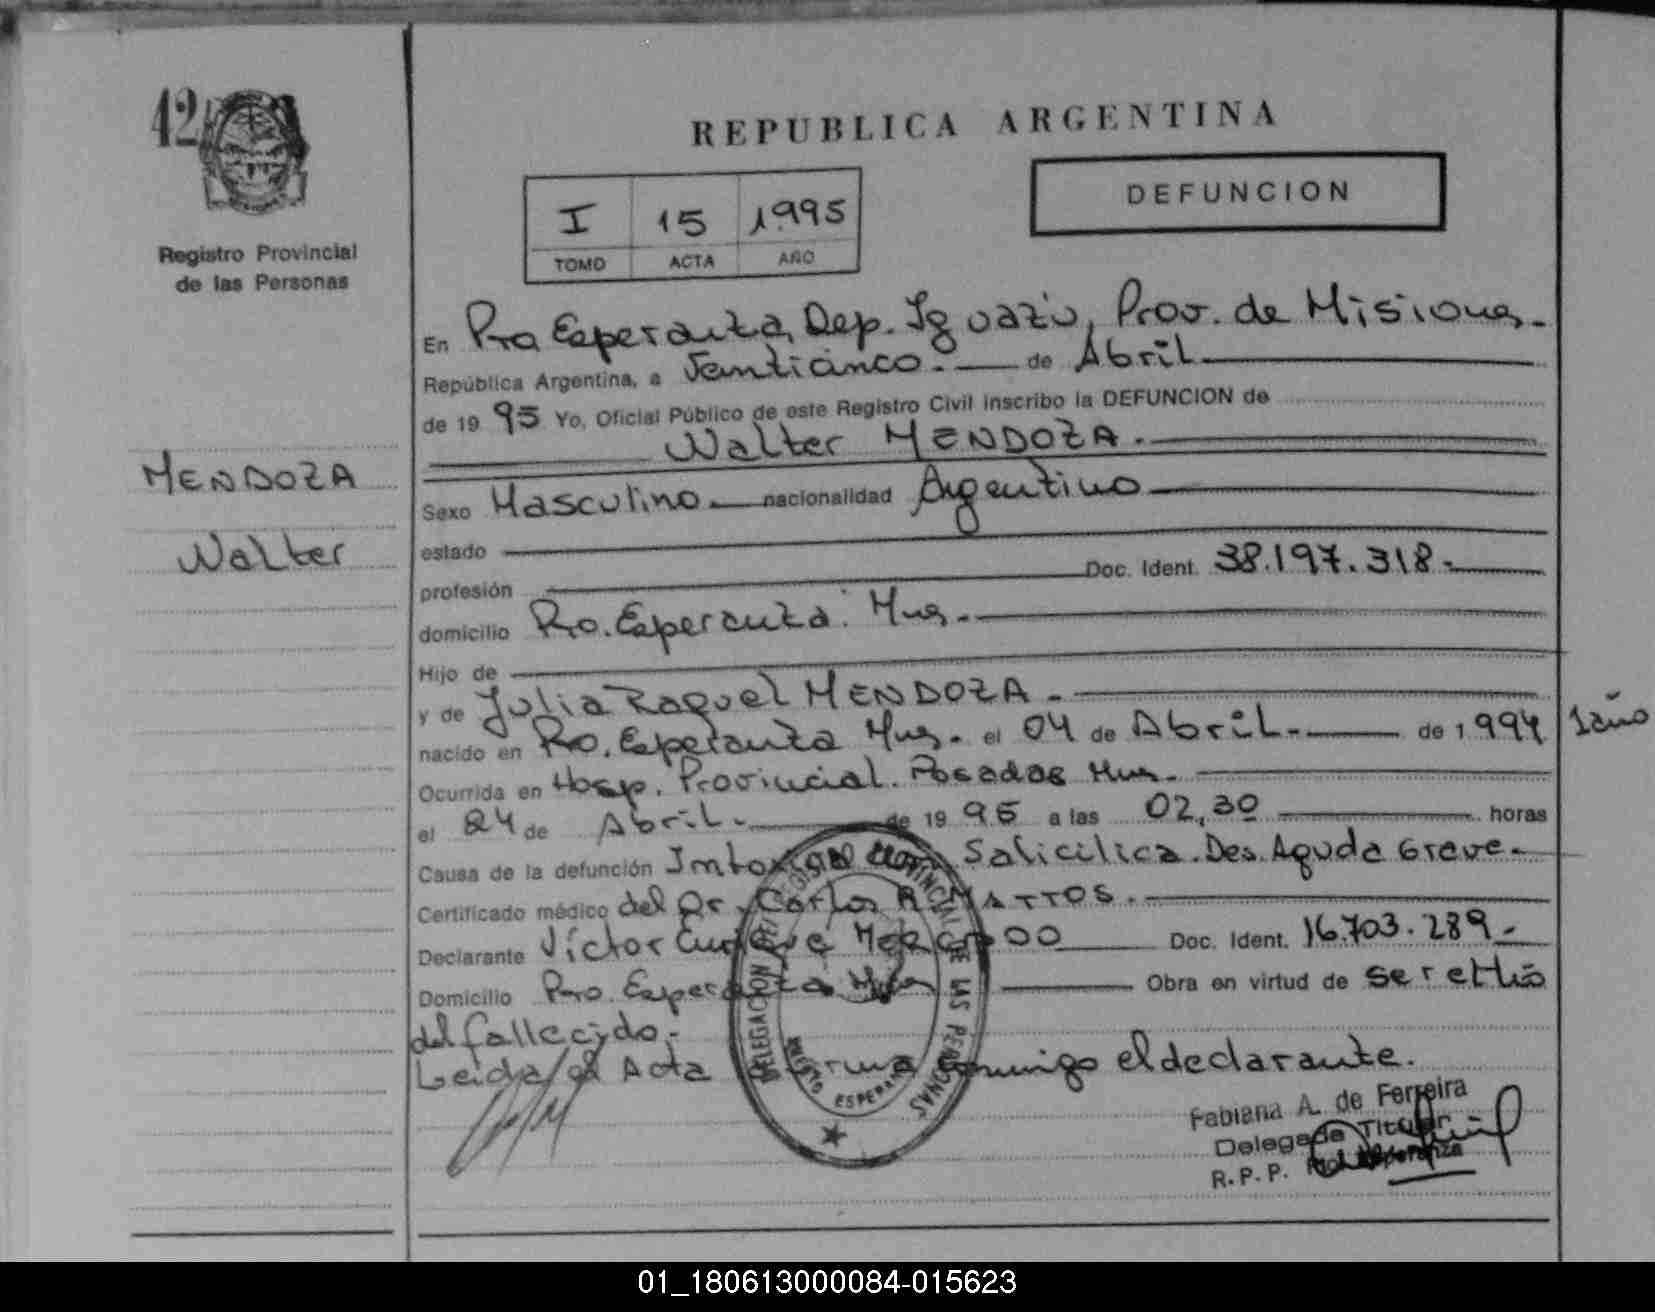 42
REPUBLICA ARGENTINA
DEFUNCION
I 15 1.995
TOMO ACTA AÑO
Registro Provincial
de las Personas
MENDOZA
Walter
En Pto Esperanza, Dep. Iguazú, Prov. de Misiones.-
República Argentina, a Veinticinco. de Abril
de 19 95 Yo, Oficial Público de este Registro Civil inscribo la DEFUNCION de
Walter MENDOZA.
Sexo Masculino. nacionalidad Argentino
estado
profesión Doc. Ident. 38.197.318.-
domicilio Pto. Esperanza. Mnes.-
Hijo de
y de Julia Raquel MENDOZA.-
nacido en Pto. Esperanza Mnes. el 04 de Abril. de 1.994 1año
Ocurrida en Hosp. Provincial. Posadas Mnes.
el 24 de Abril. de 19 95 a las 02,30 horas
Causa de la defunción Salicilica. Des. Aguda Grave.
Certificado médico del Dr. Carlos R. MATTOS.
Declarante Víctor Doc. Ident. 16.703.289.-
Domicilio Pto. Esperanza Obra en virtud de ser el tio
del fallecido.-
Leida el Acta firma conmigo el declarante.
DELEGACION DEL REGISTRO PROVINCIAL DE LAS PERSONAS
PUERTO ESPERANZA
Fabiana A. de Ferreira
Delegada Titular
R. P. P. Esperanza
01_180613000084-015623